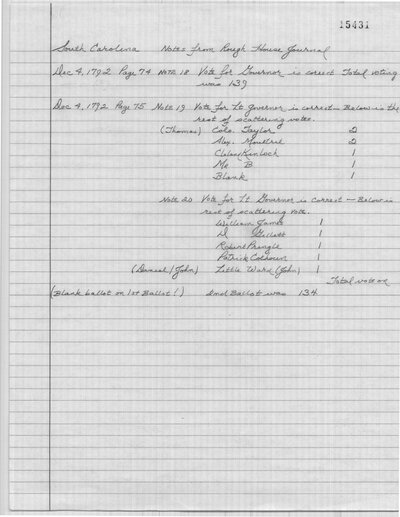 15431
South Carolina Notes from Rough House Journal
Dec 4, 1792 Page 74 Note 18 Vote for Governor is correct Total voting
was 139
Dec 4, 1792 Page 75 Note 19 Vote for Lt Governor is correct - Below is the
rest of scattering votes.
(Thomas) Colo. Taylor 2
Alex. Moultrie 2
Cleland Kinloch 1
Mr B 1
Blank 1
Note 20 Vote for Lt Governor is correct - Below is
rest of scattering vote.
William James 1
D 1
Robert Pringle 1
Patrick Calhoun 1
(John) Little Ward (John) 1
Total vote on
(Blank ballot on 1st Ballot!) 2nd Ballot was 134